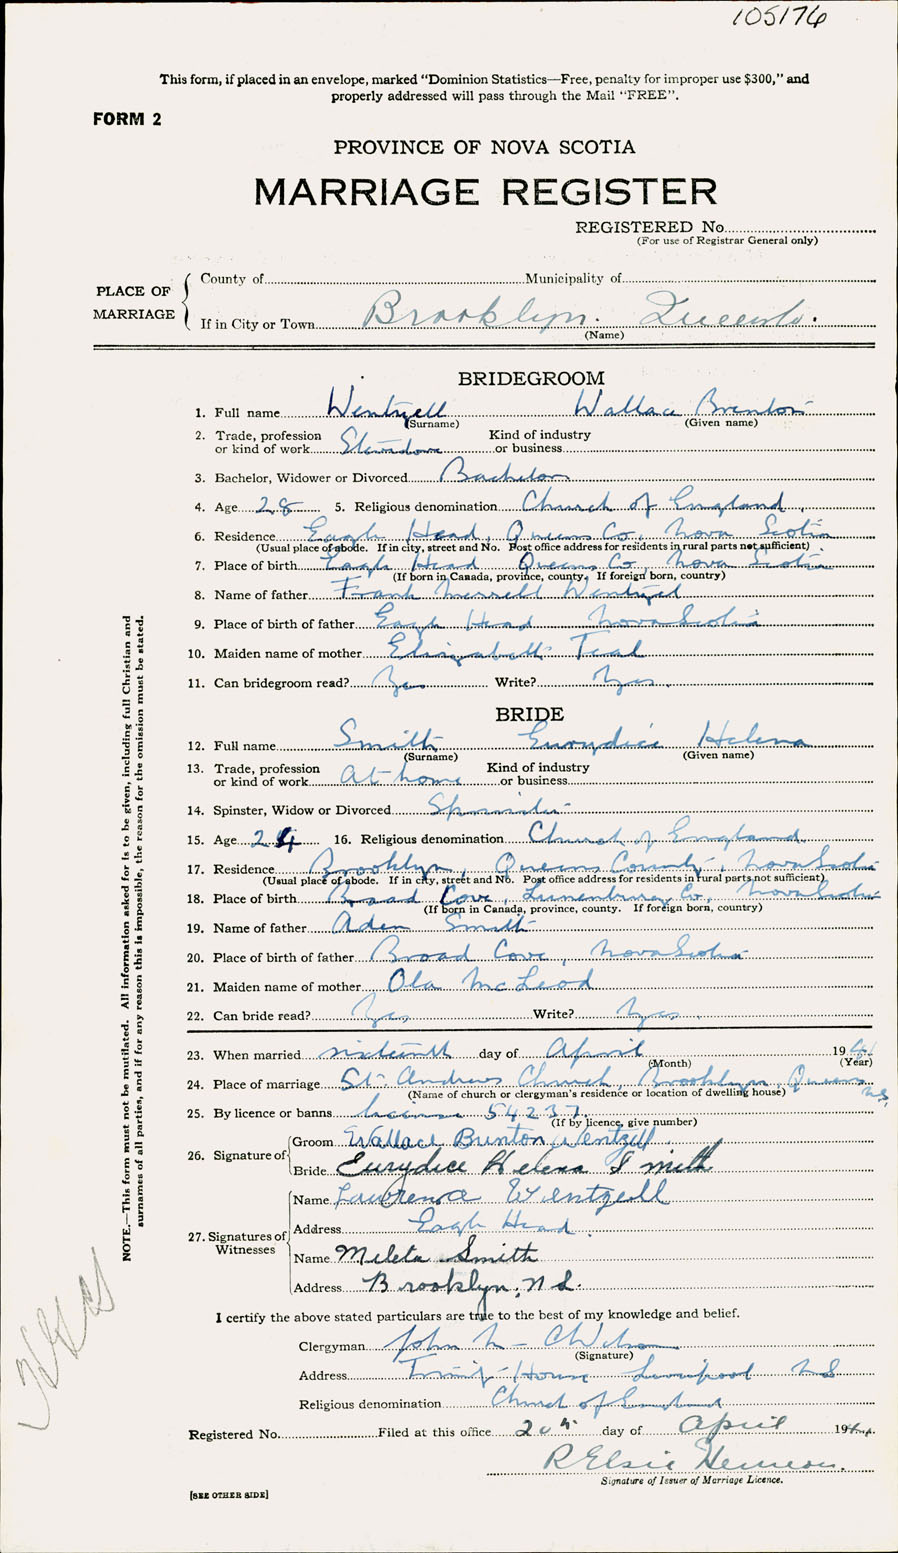 105176
This form, if placed in an envelope, marked “Dominion Statistics—Free, penalty for improper use $300,” and
properly addressed will pass through the Mail “FREE”.
FORM 2
PROVINCE OF NOVA SCOTIA
MARRIAGE REGISTER
REGISTERED No.
(For use of Registrar General only)
PLACE OF MARRIAGE
County of Municipality of
If in City or Town Brooklyn. Queens Co.
(Name)
BRIDEGROOM
1. Full name Wentzell Wallace Brenton
(Surname) (Given name)
2. Trade, profession or kind of work Stevedore Kind of industry or business
3. Bachelor, Widower or Divorced Bachelor
4. Age 28 5. Religious denomination Church of England
6. Residence Eagle Head, Queens Co, Nova Scotia
(Usual place of abode. If in city, street and No. Post office address for residents in rural parts not sufficient)
7. Place of birth Eagle Head Queens Co, Nova Scotia
(If born in Canada, province, county. If foreign born, country)
8. Name of father Frank Merrell Wentzel
9. Place of birth of father Eagle Head Nova Scotia
10. Maiden name of mother Elizabeth Teal
11. Can bridegroom read? Yes Write? Yes.
BRIDE
12. Full name Smith Eurydice Helena
(Surname) (Given name)
13. Trade, profession or kind of work At home Kind of industry or business
14. Spinster, Widow or Divorced Spinster
15. Age 24 16. Religious denomination Church of England
17. Residence Brooklyn, Queens County, Nova Scotia
(Usual place of abode. If in city, street and No. Post office address for residents in rural parts not sufficient)
18. Place of birth Broad Cove, Lunenburg Co, Nova Scotia
(If born in Canada, province, county. If foreign born, country)
19. Name of father Aden Smith
20. Place of birth of father Broad Cove, Nova Scotia
21. Maiden name of mother Ola McLeod
22. Can bride read? Yes Write? Yes.
23. When married sixteenth day of April 19
(Month) (Year)
24. Place of marriage St. Andrews Church, Brooklyn, Queens N.S.
(Name of church or clergyman's residence or location of dwelling house)
25. By licence or banns license 54237.
(If by licence, give number)
26. Signature of
Groom Wallace Brenton Wentzell
Bride Eurydice Helena Smith
27. Signatures of Witnesses
Name Lawrence Wentzell
Address Eagle Head.
Name Meleta Smith
Address Brooklyn, N S.
I certify the above stated particulars are true to the best of my knowledge and belief.
Clergyman John
(Signature)
Address Trinity House Liverpool N S
Religious denomination Church of England
Registered No. Filed at this office 20th day of April 19
R Elsie Hemeon.
Signature of Issuer of Marriage Licence.
[SEE OTHER SIDE]
NOTE.—This form must not be mutilated. All information asked for is to be given, including full Christian and
surnames of all parties, and if for any reason this is impossible, the reason for the omission must be stated.